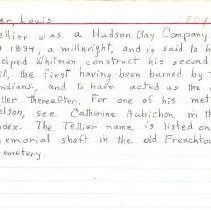 er, Louis 1804
Tellier was a Hudson Bay Company
1834, a millwright, and is said to h
elped Whitman construct his second
ill, the first having been burned by t
ndians, and to have acted as the
ller thereafter. For one of his met
elson, see Catherine Aubichon in th
ndex. The Tellier name is listed on
emorial shaft in the old Frenchto
emetery.